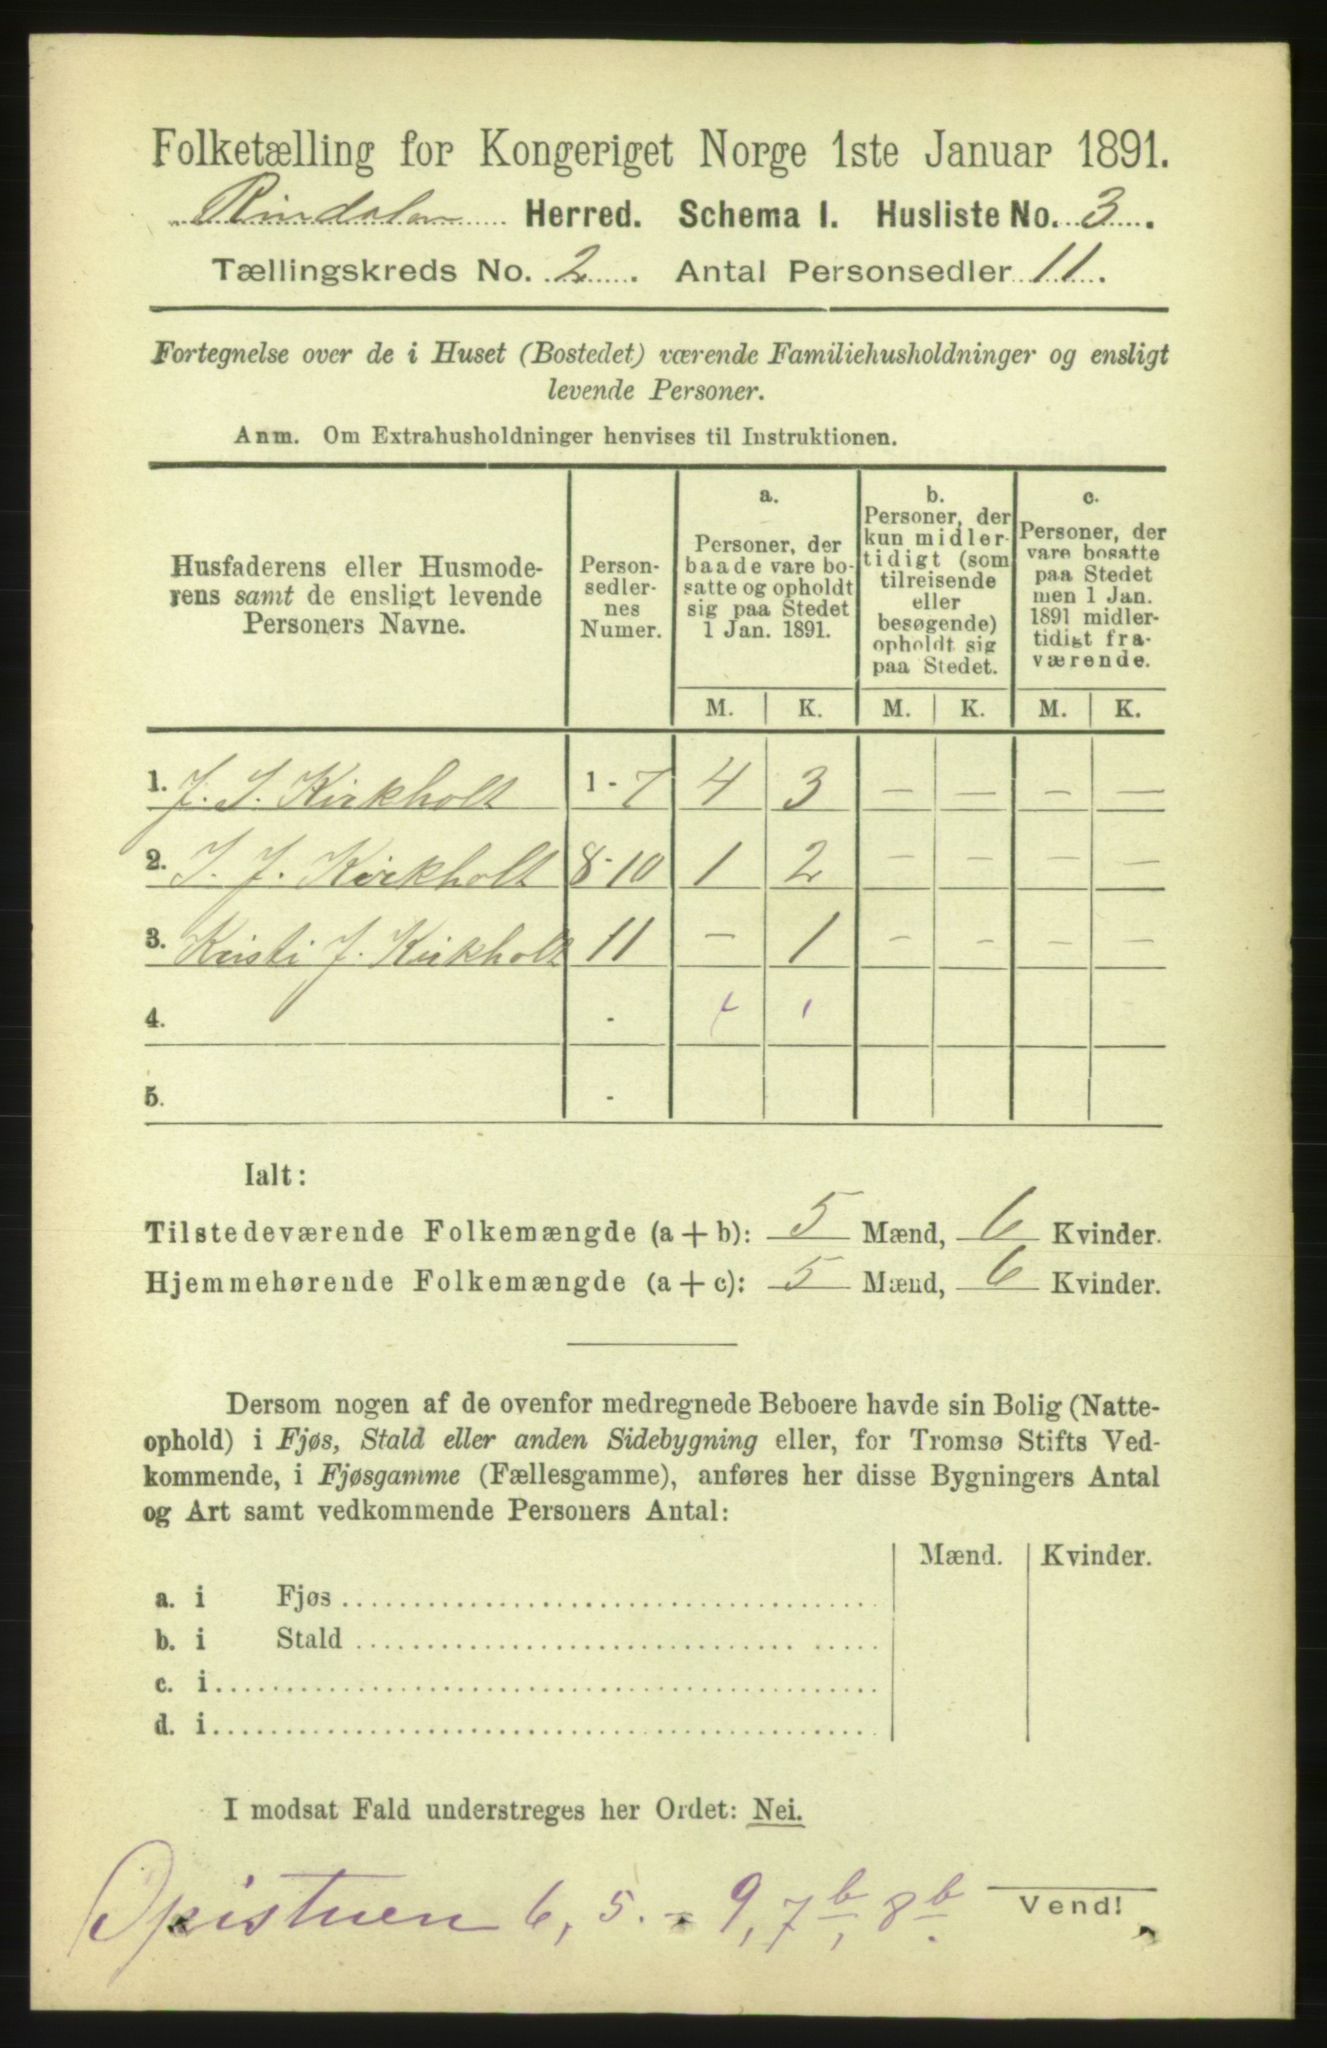 Folketælling for Kongeriget Norge 1ste Januar 1891.
Rindalen Herred. Schema I. Husliste No. 3.
Tællingskreds No. 2. Antal Personsedler 11.
Fortegnelse over de i Huset (Bostedet) værende Familiehusholdninger og ensligt
levende Personer.
Anm. Om Extrahusholdninger henvises til Instruktionen.
Husfaderens eller Husmode-
rens samt de ensligt levende
Personers Navne.
Person-
sedler-
nes
Numer.
a.
Personer, der
baade vare bo-
satte og opholdt
sig paa Stedet
1 Jan. 1891.
b.
Personer, der
kun midler-
tidigt (som
tilreisende
eller
besøgende)
opholdt sig
paa Stedet.
c.
Personer, der
vare bosatte
paa Stedet
men 1 Jan.
1891 midler-
tidigt fra-
værende.
M. K. M. K. M. K.
1. J. I. Kirkholt 1 - 7 4 3 — — — —
2. I. J. Kirkholt 8-10 1 2 — — — —
3. Kristi J. Kirkholt 11 — 1 — — — —
4. -
5. -
Ialt:
Tilstedeværende Folkemængde (a + b): 5 Mænd, 6 Kvinder.
Hjemmehørende Folkemængde (a + c): 5 Mænd, 6 Kvinder.
Dersom nogen af de ovenfor medregnede Beboere havde sin Bolig (Natte-
ophold) i Fjøs, Stald eller anden Sidebygning eller, for Tromsø Stifts Ved-
kommende, i Fjøsgamme (Fællesgamme), anføres her disse Bygningers Antal
og Art samt vedkommende Personers Antal:
Mænd. Kvinder.
a. i Fjøs
b. i Stald
c. i
d. i
I modsat Fald understreges her Ordet: Nei.
Opistuen 6, 5. - 9, 7b, 8b.
Vend!